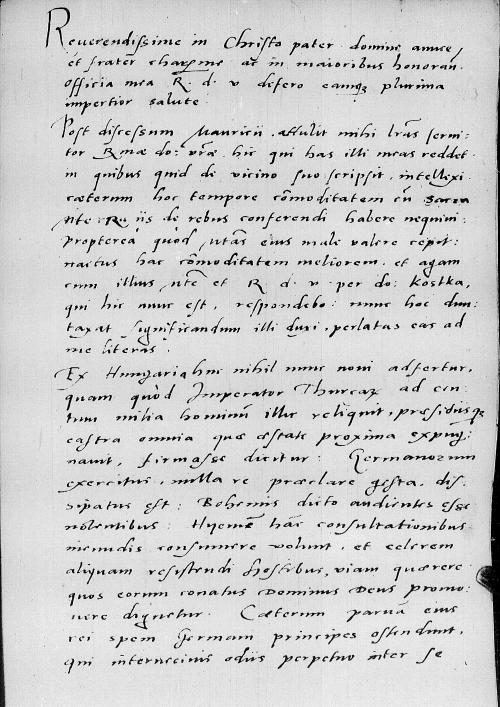 Reverendissime in Christo pater domine amice
et frater charissime ac in maioribus honoran:
officia mea R. d. v defero eamq3 plurima
impertior salute
Post discessum Mauricii, attulit mihi lras servi-
tor Rmae do: vrae hic qui has illi meas reddet
in quibus quid de vicino suo scripsit, intellexi
caeterum hoc tempore comoditatem cu sacra
Mte Ru iis de rebus conferendi habere nequivi:
propterea quod Mtas eius male valere cepit:
nactus hac comoditatem meliorem, et agam
cum illius Mte et R d. v. per do: Kostka,
qui hic nunc est, respondebo: nunc hoc dun-
taxat significandum illi duxi, perlatas eas ad
me literas.
Ex Hungaria huc nihil nunc novi adfertur,
quam quod Imperator Thurcar ad cen-
tum milia hominu illic reliquit, praesidiisq3
castra omnia quae aestate proxima expug-
navit, firmasse dicitur: Germanorum
exercitus, nulla re praeclare gesta, dis-
sipatus est: Bohemis dicto audientes esse
nolentibus: Hyeme hac consultationibus
ineundis consumere volunt, et celerem
aliquam resistendi hostibus, viam quaerere
quos eorum conatus Dominus Deus promo-
vere dignetur. Caeterum parva eius
rei spem Germani principes ostendunt,
qui internecinis odiis perpetuo inter se